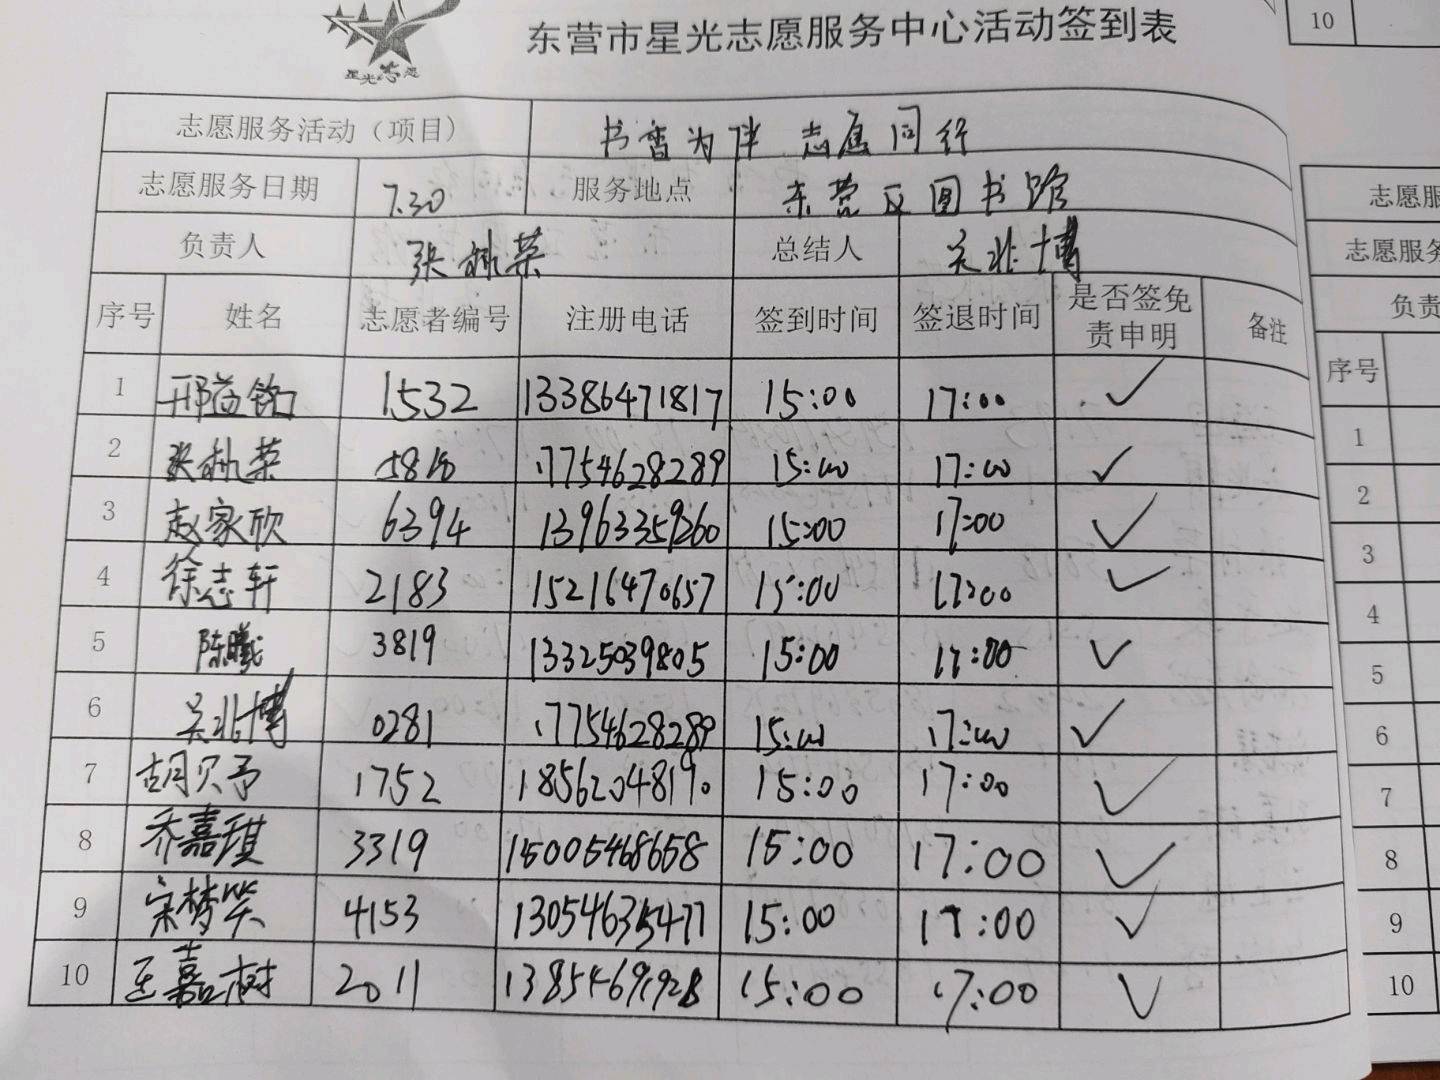 星光志愿
东营市星光志愿服务中心活动签到表
志愿服务活动（项目） 书香为伴 志愿同行
志愿服务日期 7.30 服务地点 东营区图书馆
负责人 张 荣 总结人 吴兆博
序号 姓名 志愿者编号 注册电话 签到时间 签退时间 是否签免责申明 备注
1 邢益铭 1532 13386471817 15:00 17:00 ✓
2 张 荣 5818 17754628289 15:00 17:00 ✓
3 赵家欣 6394 13963359260 15:00 17:00 ✓
4 徐志轩 2183 15216470657 15:00 17:00 ✓
5 陈曦 3819 13325039805 15:00 17:00 ✓
6 吴兆博 0281 17754628289 15:00 17:00 ✓
7 胡贝予 1752 18562048190 15:00 17:00 ✓
8 乔嘉琪 3319 15005468658 15:00 17:00 ✓
9 宋梦笑 4153 13054635477 15:00 17:00 ✓
10 王嘉树 2011 13854691928 15:00 17:00 ✓
10
志愿服
志愿服务
负责
序号
1
2
3
4
5
6
7
8
9
10